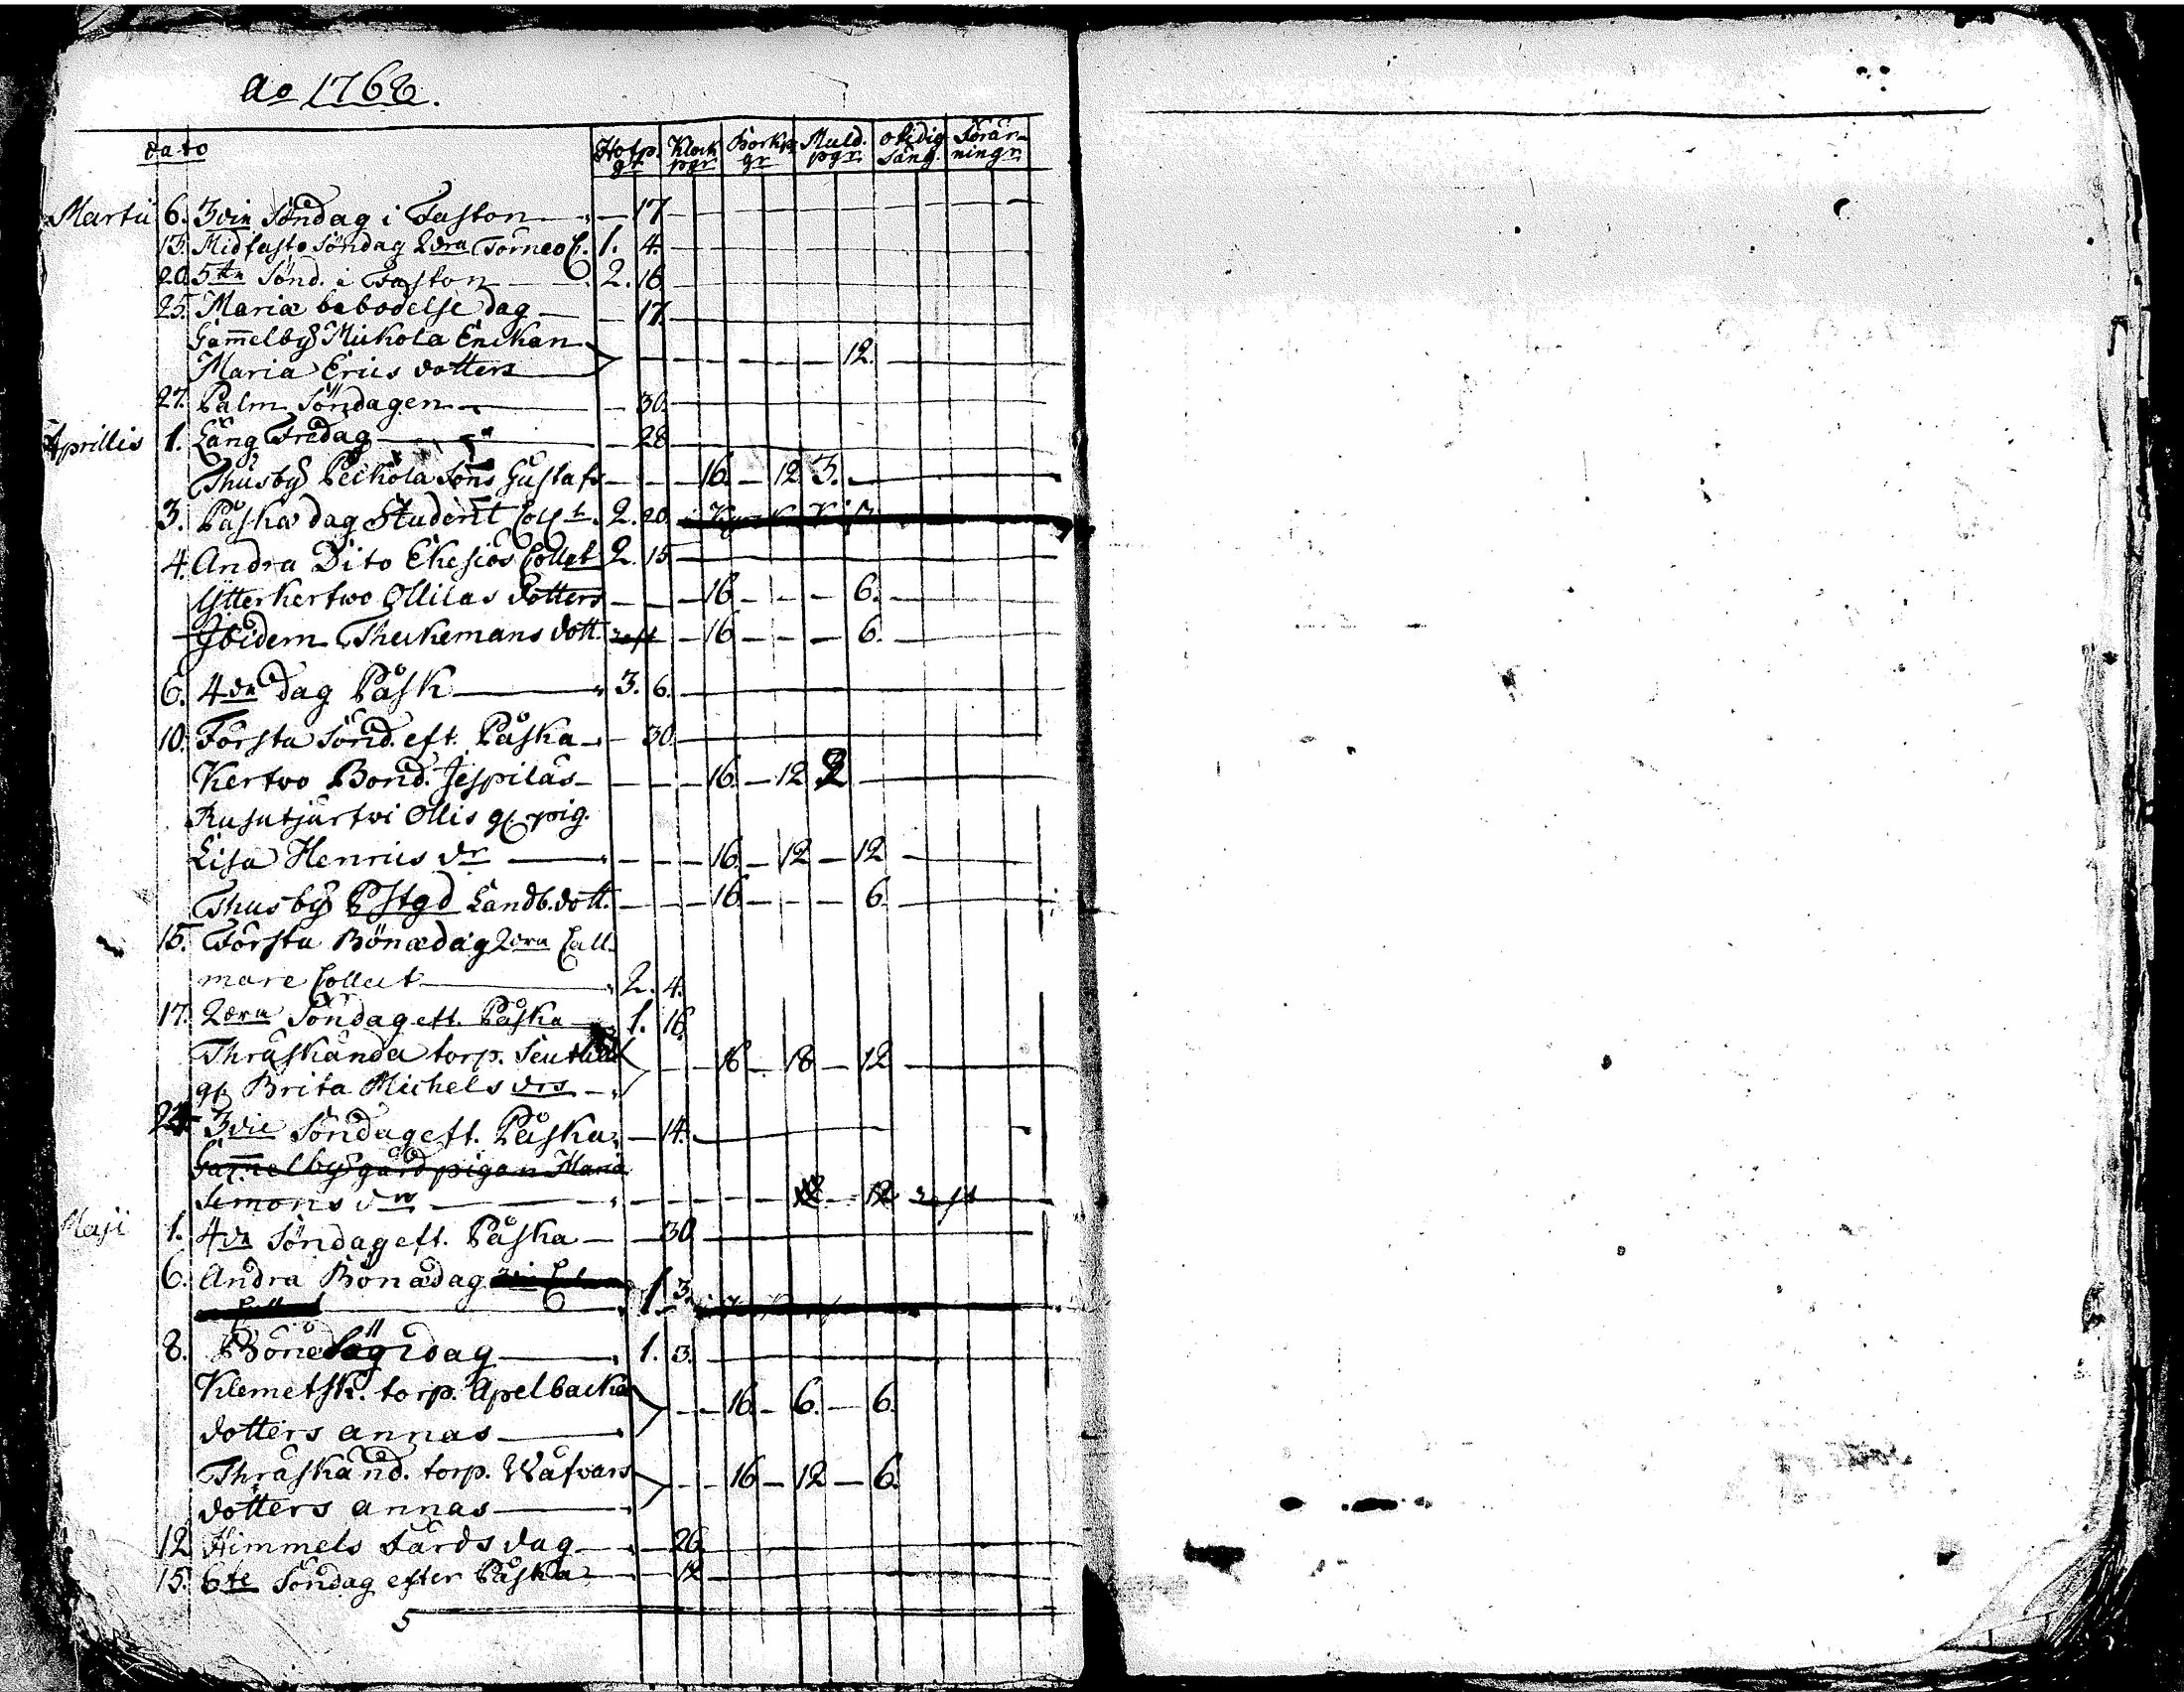 Ao 1768.
dato Hofp. gr Klock pgr Bork pgr Muld. pgr otidig säng. Förär- ningr
Martii 6. 3die Söndag i Faston — 17
13. Midfasto Söndag 2dra Torneo C. 1. 4.
20. 5te Sönd. i Faston — 2. 16.
25. Mariæ bebodelse dag — 17.
Gam̅elby Mickola Enckan
Maria Erics dotters — 12.
27. Palm Söndagen — 30.
Aprillis 1. Lång Fredag — 28
Thusby Peckola Sons Gustafs — 16. — 12 3. —
3. Påska dag Student Coll t. 2. 20.
4. Andra Dito Ekesiös Collect 2. 15
Ytterkertwo Ollilas dotters — 16 — 6. —
Ibidem Theckemans dott. rest — 16 — 6. —
6. 4de dag Påsk — 3. 6.
10. Första Sönd. eft. Påska — 30.
Kertwo Bond. Jespilas — 16. — 12 2 —
Rusutjärwi Ollis gl. pig.
Lisa Henrics dr — 16. — 12 — 12 —
Thusby PStgd Landb. dott. — 16 — 6. —
15. Första Bönædag 2dra Call
mare Collect — 2. 4.
17. 2dra Söndag eft. Påska — 1. 16.
Thräskända torp.
gl Brita Michels drs — 16 — 18 — 12 —
24 3die Söndag eft. Påska — 14. —
Gam̅elby gård pigan Maria
Simons dr — 12 rest
Maji 1. 4de Söndag eft. Påska — 30
6. Andra Bönædag 1. 3.
8. Böne Sögndag — 1. 3.
Klemetsk. torp. Apelbacka
dotters annas — 16. — 6. — 6.
Thräskänd. torp. Wäfvars
dotters annas — 16 — 12 — 6.
12 Himmels Färds dag — 26.
15. 6te Söndag efter Påska — 12
5